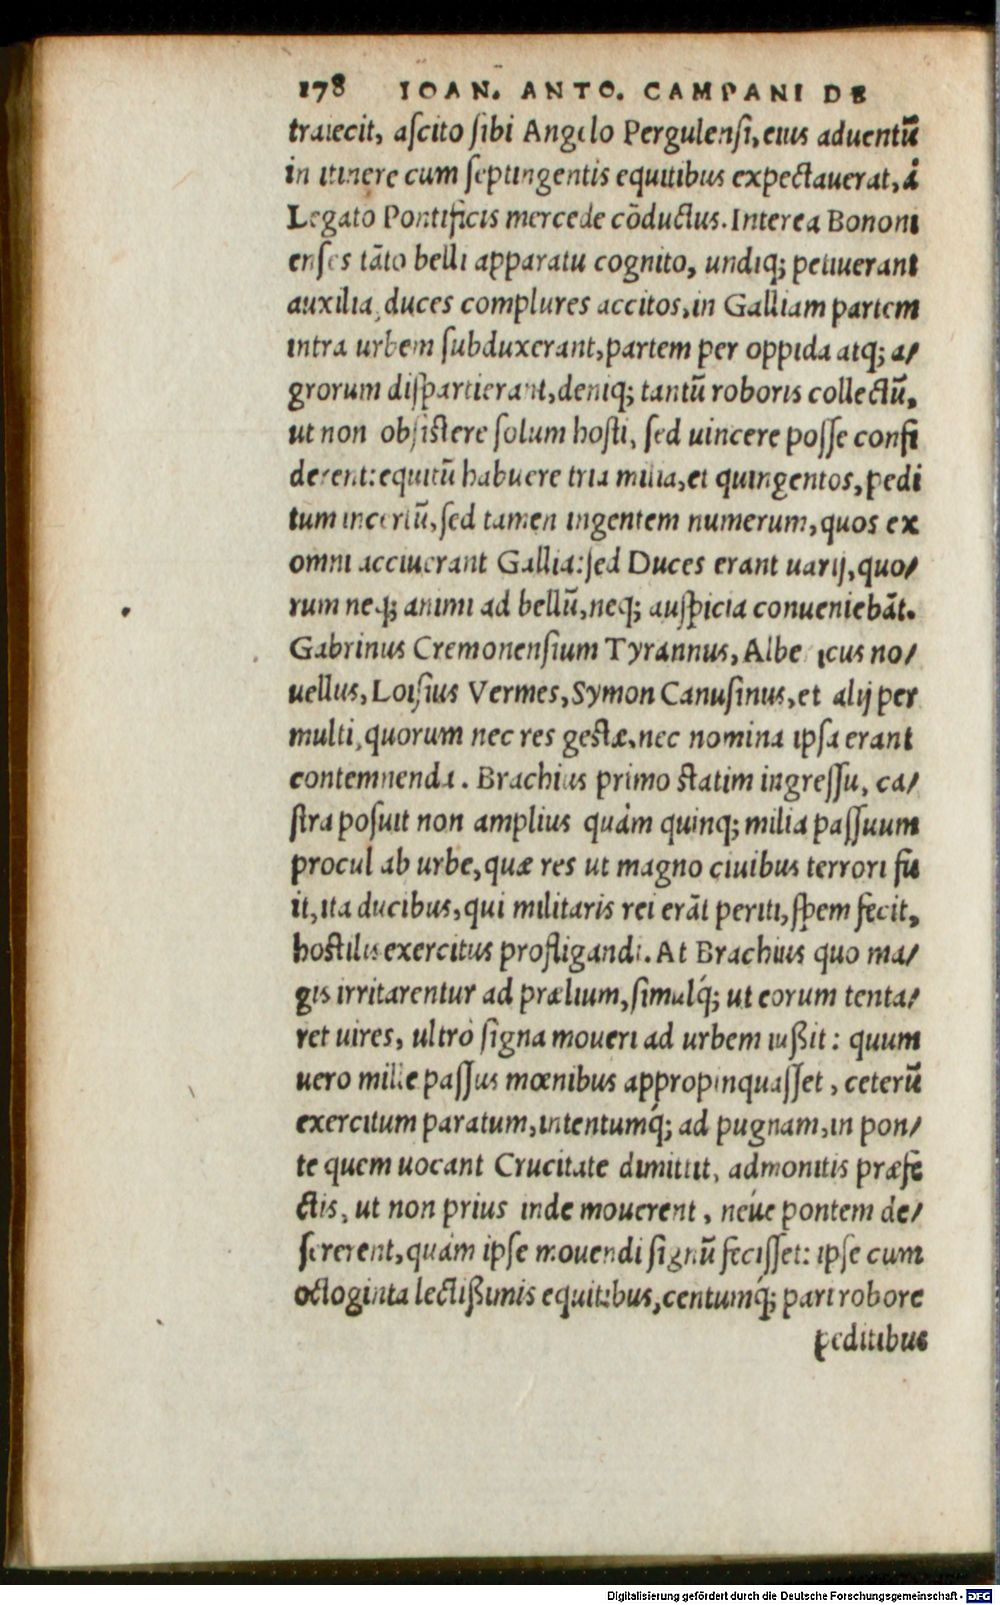 178 IOAN. ANTO. CAMPANI DE
traiecit, ascito sibi Angelo Pergulensi, eius aduentũ
in itinere cum septingentis equitibus expectauerat, à
Legato Pontificis mercede cõductus. Interea Bononi
enses tãto belli apparatu cognito, undiq; petiuerant
auxilia, duces complures accitos, in Galliam partem
intra urbem subduxerant, partem per oppida atq; a/
grorum dispartierant, deniq; tantũ roboris collectũ,
ut non obsistere solum hosti, sed uincere posse confi
derent: equitũ habuere tria milia, et quingentos, pedi
tum incertũ, sed tamen ingentem numerum, quos ex
omni acciuerant Gallia: sed Duces erant uarij, quo/
rum neq; animi ad bellũ, neq; auspicia conueniebãt.
Gabrinus Cremonensium Tyrannus, Albe icus no/
uellus, Loisius Vermes, Symon Canusinus, et alij per
multi, quorum nec res gestæ, nec nomina ipsa erant
contemnenda. Brachius primo statim ingressu, ca/
stra posuit non amplius quàm quinq; milia passuum
procul ab urbe, quæ res ut magno ciuibus terrori fu
it, ita ducibus, qui militaris rei erãt periti, spem fecit,
hostilis exercitus profligandi. At Brachius quo ma/
gis irritarentur ad prælium, simulq́; ut eorum tenta/
ret uires, ultrò signa moueri ad urbem iußit: quum
uero mille passus mœnibus appropinquasset, ceterũ
exercitum paratum, intentumq́; ad pugnam, in pon/
te quem uocant Crucitate dimittit, admonitis præfe
ctis, ut non prius inde mouerent, néue pontem de/
sererent, quàm ipse mouendi signũ fecisset: ipse cum
octoginta lectißimis equitibus, centumq́; pari robore
peditibus
Digitalisierung gefördert durch die Deutsche Forschungsgemeinschaft - DFG